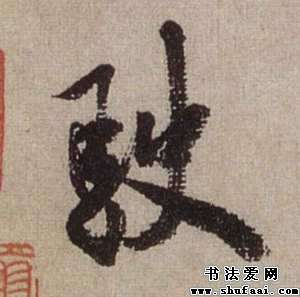 駛
书法爱网
www.shufaai.com